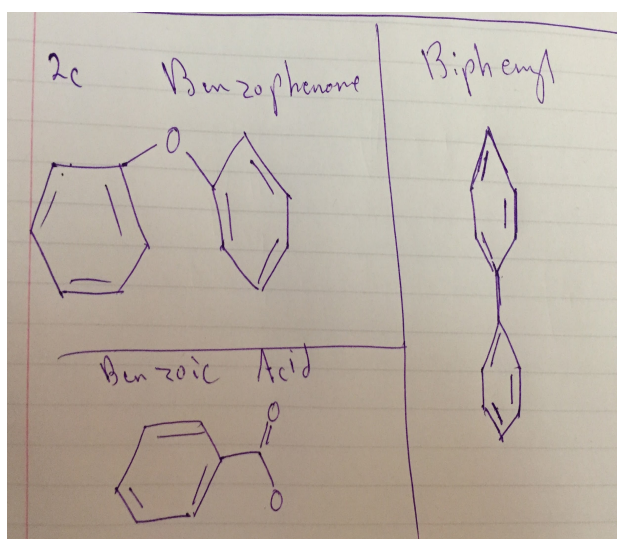 2c Benzophenone
Biphenyl
O
Benzoic Acid
O
O